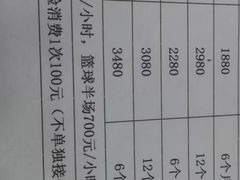 1880 6个月
2980 12个
2280 6个
3080 12个
3480 6个
/小时，篮球半场700元/小时
消费1次100元（不单独接